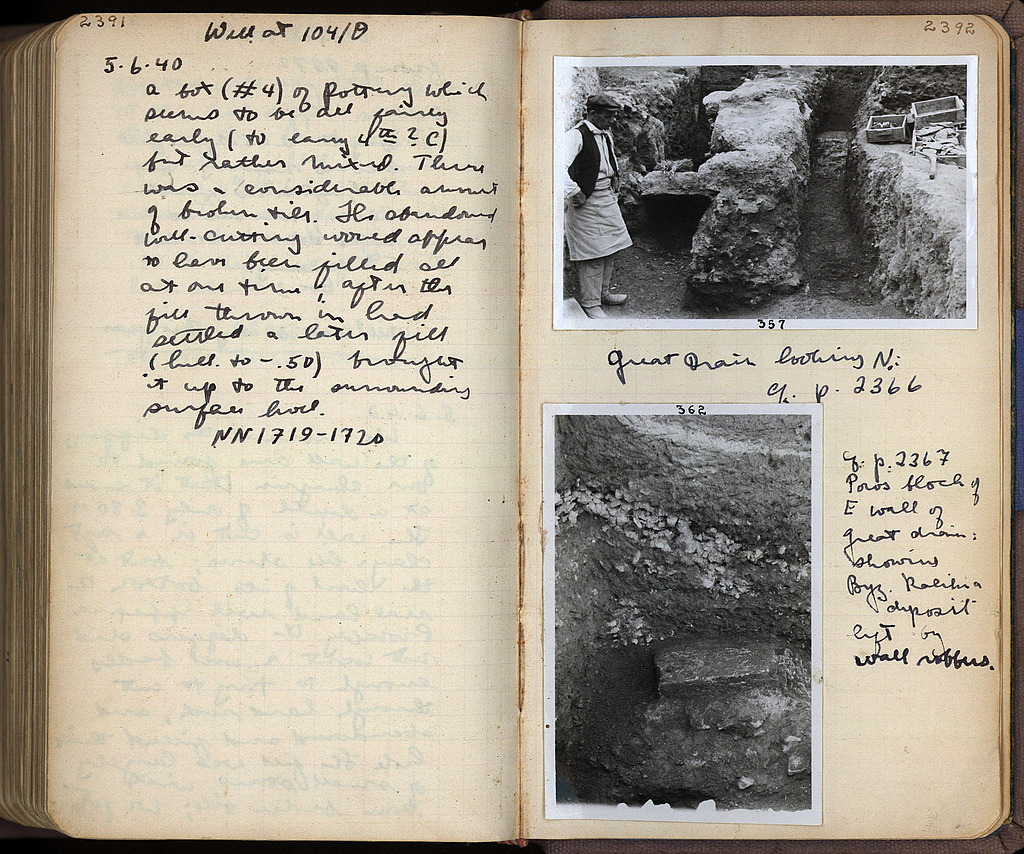 2391
Well at 104/Θ
5.6.40
a box (#4) of pottery which
seems to be all fairly
early (to early 4th ? C)
but rather mixed. There
was a considerable amount
of broken tile. The abandoned
well-cutting would appear
to have been filled all
at one time; after the
fill thrown in had
settled a later fill
(hell. to -.50) brought
it up to the surrounding
surface level.
NN1719-1720
2392
357
Great Drain looking N:
cf. p. 2366
362
cf. p. 2367
Poros block of
E wall of
great drain:
showing
Byz.
deposit
left by
wall robbers.